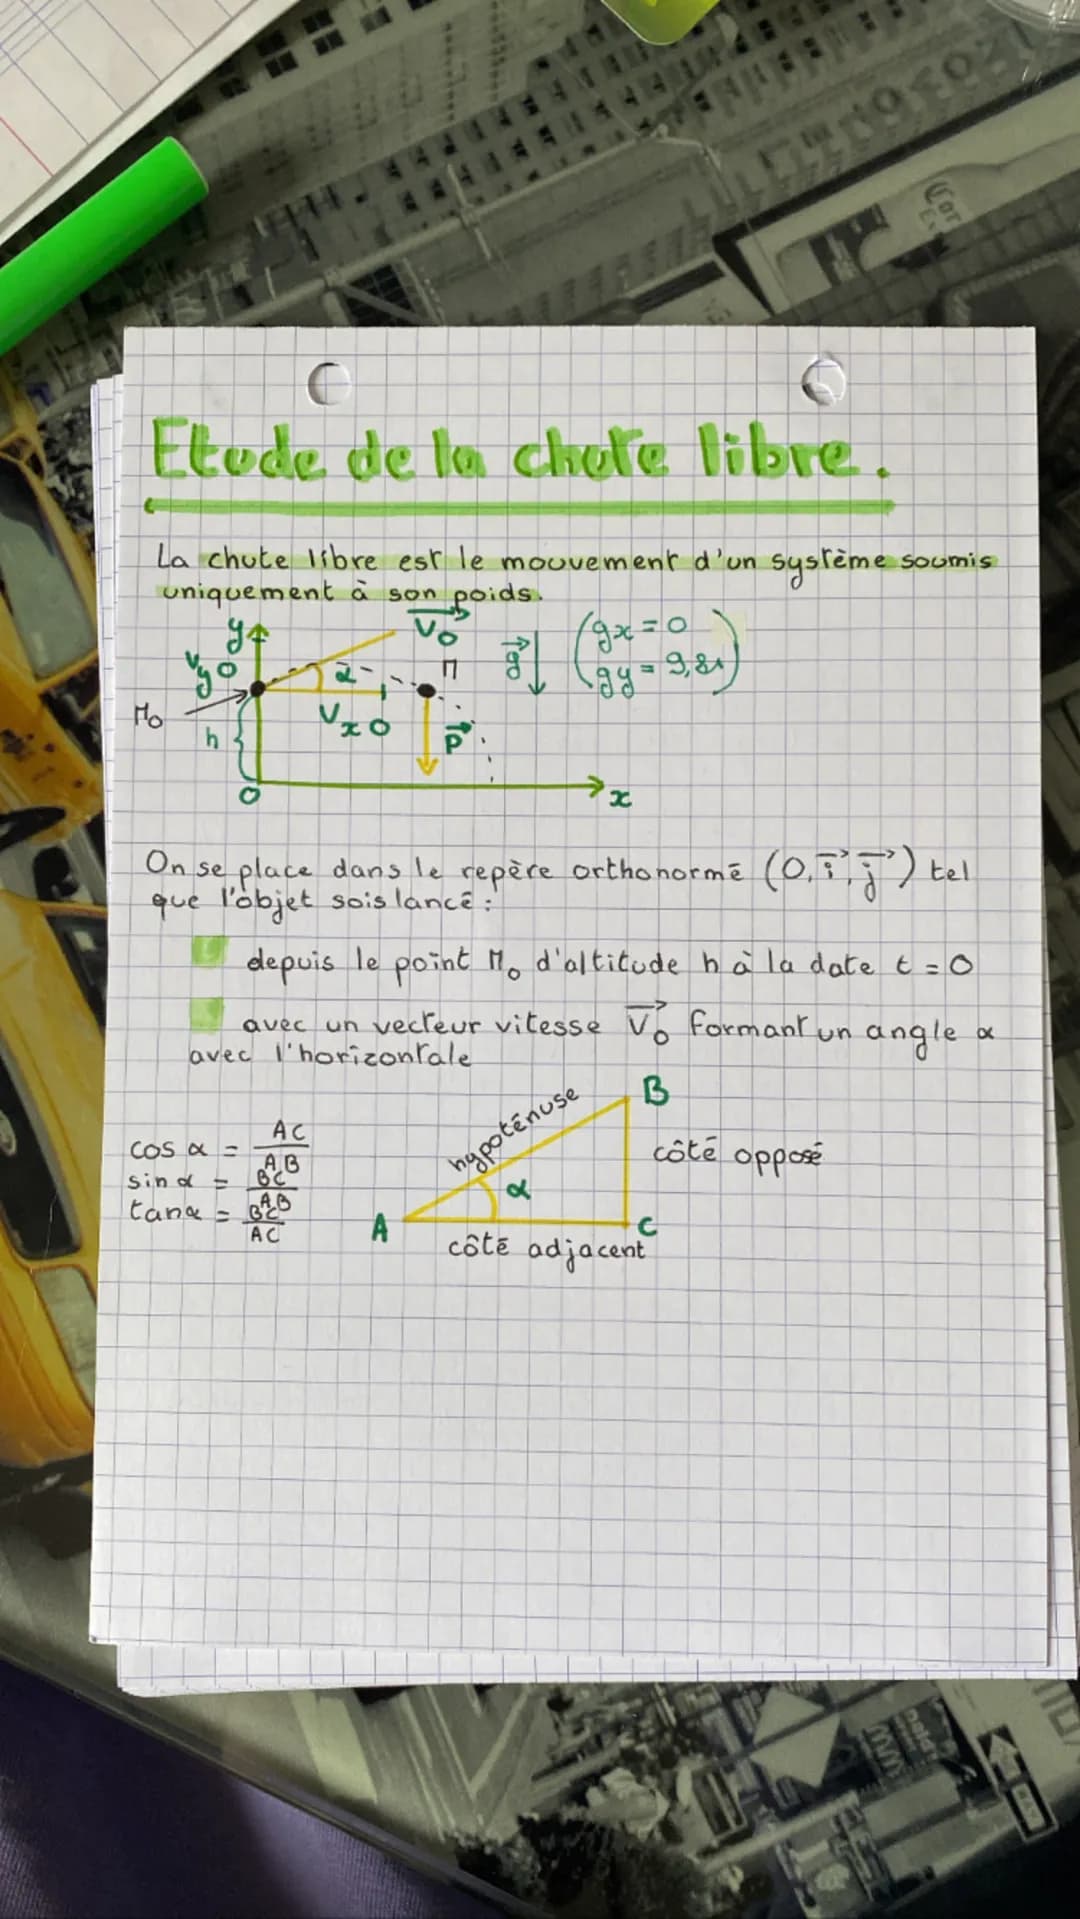 Etude de la chute libre.
La chute libre est le mouvement d'un système soumis
uniquement à son poids.
y
V₀
Vy0
α
M
g
(gx = 0
gy = 9,81)
M₀
Vx0
h
P
0
x
On se place dans le repère orthonormé (O, i, j) tel
que l'objet sois lancé :
depuis le point M₀ d'altitude h à la date t = 0
avec un vecteur vitesse V₀ formant un angle α
avec l'horizontale
hypoténuse
B
cos α = AC/AB
côté opposé
sin α = BC/AB
α
tan α = BC/AC
A
C
côté adjacent